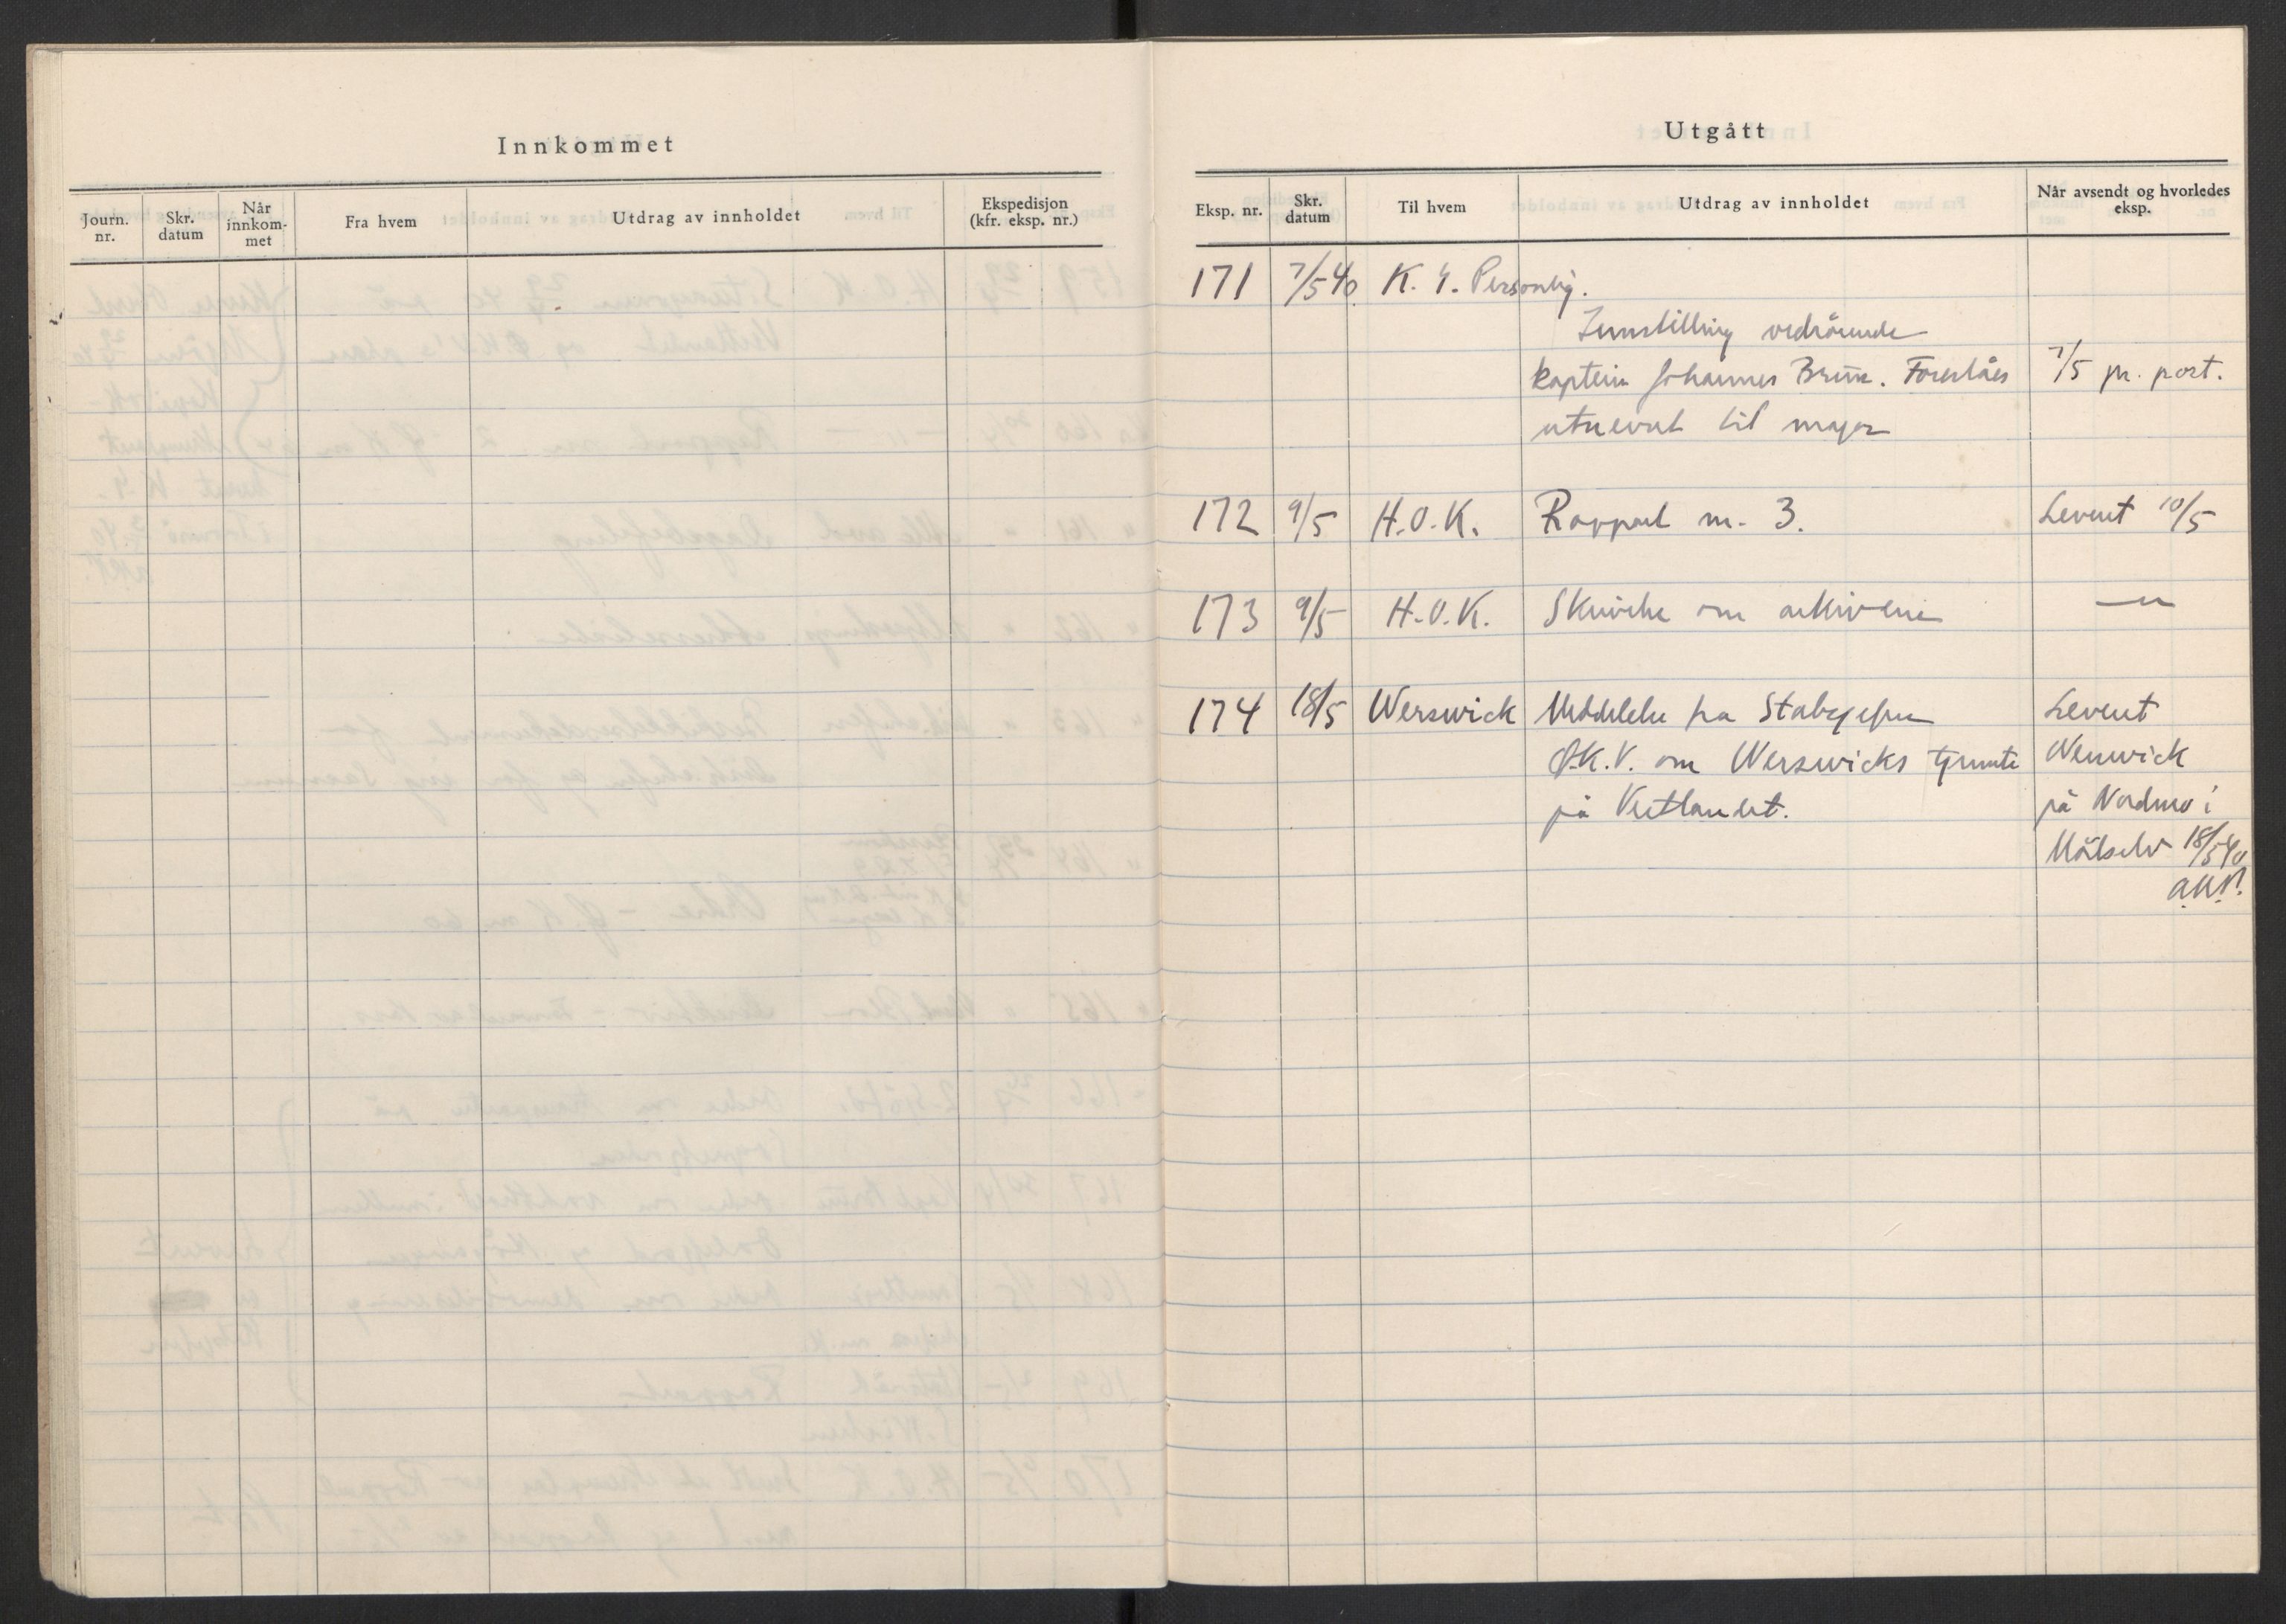 Innkommet
Journ. nr.
Skr. datum
Når innkom-met
Fra hvem
Utdrag av innholdet
Ekspedisjon (kfr. eksp. nr.)
Utgått
Eksp. nr.
Skr. datum
Til hvem
Utdrag av innholdet
Når avsendt og hvorledes eksp.
171 7/5 40 K. G. Personlig.
Innstilling vedrörende
kaptein Johannes Brun. Foreslåes 7/5 pr. post.
utnevnt til major
172 9/5 H.O.K. Rapport nr. 3. Levert 10/5
173 9/5 H.O.K. Skrivelse om arkivene —"—
174 18/5 Werswick Meddelelse fra Stabssjefen Levert
Ø.K.V. om Werswicks tjeneste Werswick
på Vestlandet. på Nordmo i
Målselv 18/5 40